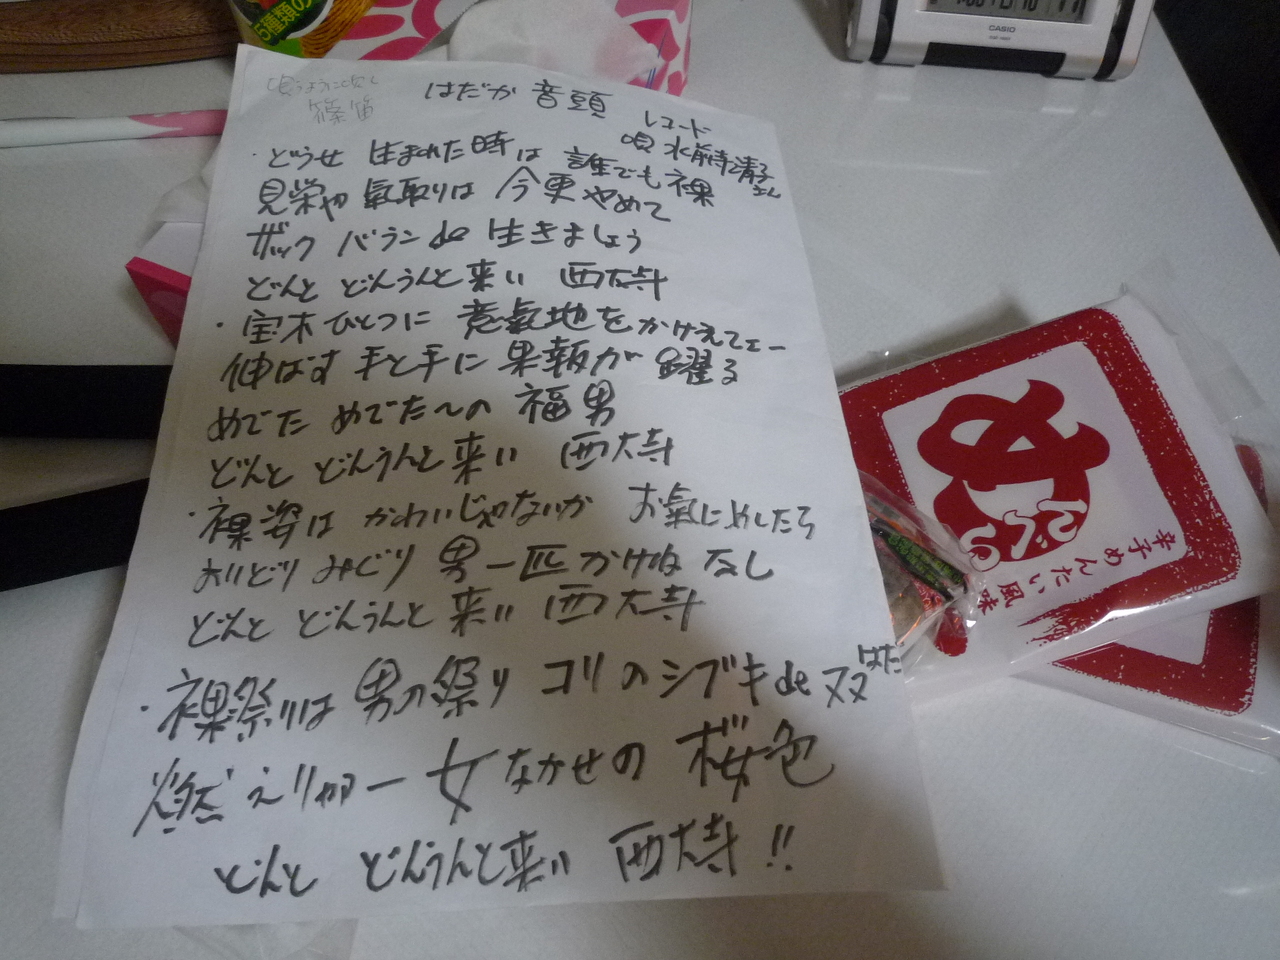 はだか音頭
レコード
唄 水前寺清子
さん
・どうせ 生まれた時は 誰でも裸
見栄や 氣取りは 今更やめて
ザック バラン de 生きましょう
どんと どんうんと来い 西大寺
・宝木ひとつに 意氣地をかけ
伸ばす 手と手に 果報が 躍る
めでた めでた〜の 福男
どんと どんうんと来い 西大寺
・裸姿は かわいじゃないか お氣にめしたら
よりどり みどり 男一匹 かけねなし
どんと どんうんと来い 西大寺
・裸祭りは 男の祭り コリのシブキ de 双はだ
燃えりゃー 女なかせの 桜色
どんと どんうんと来い 西大寺!!
CASIO
5種類の
めんべい
辛子めんたい風味